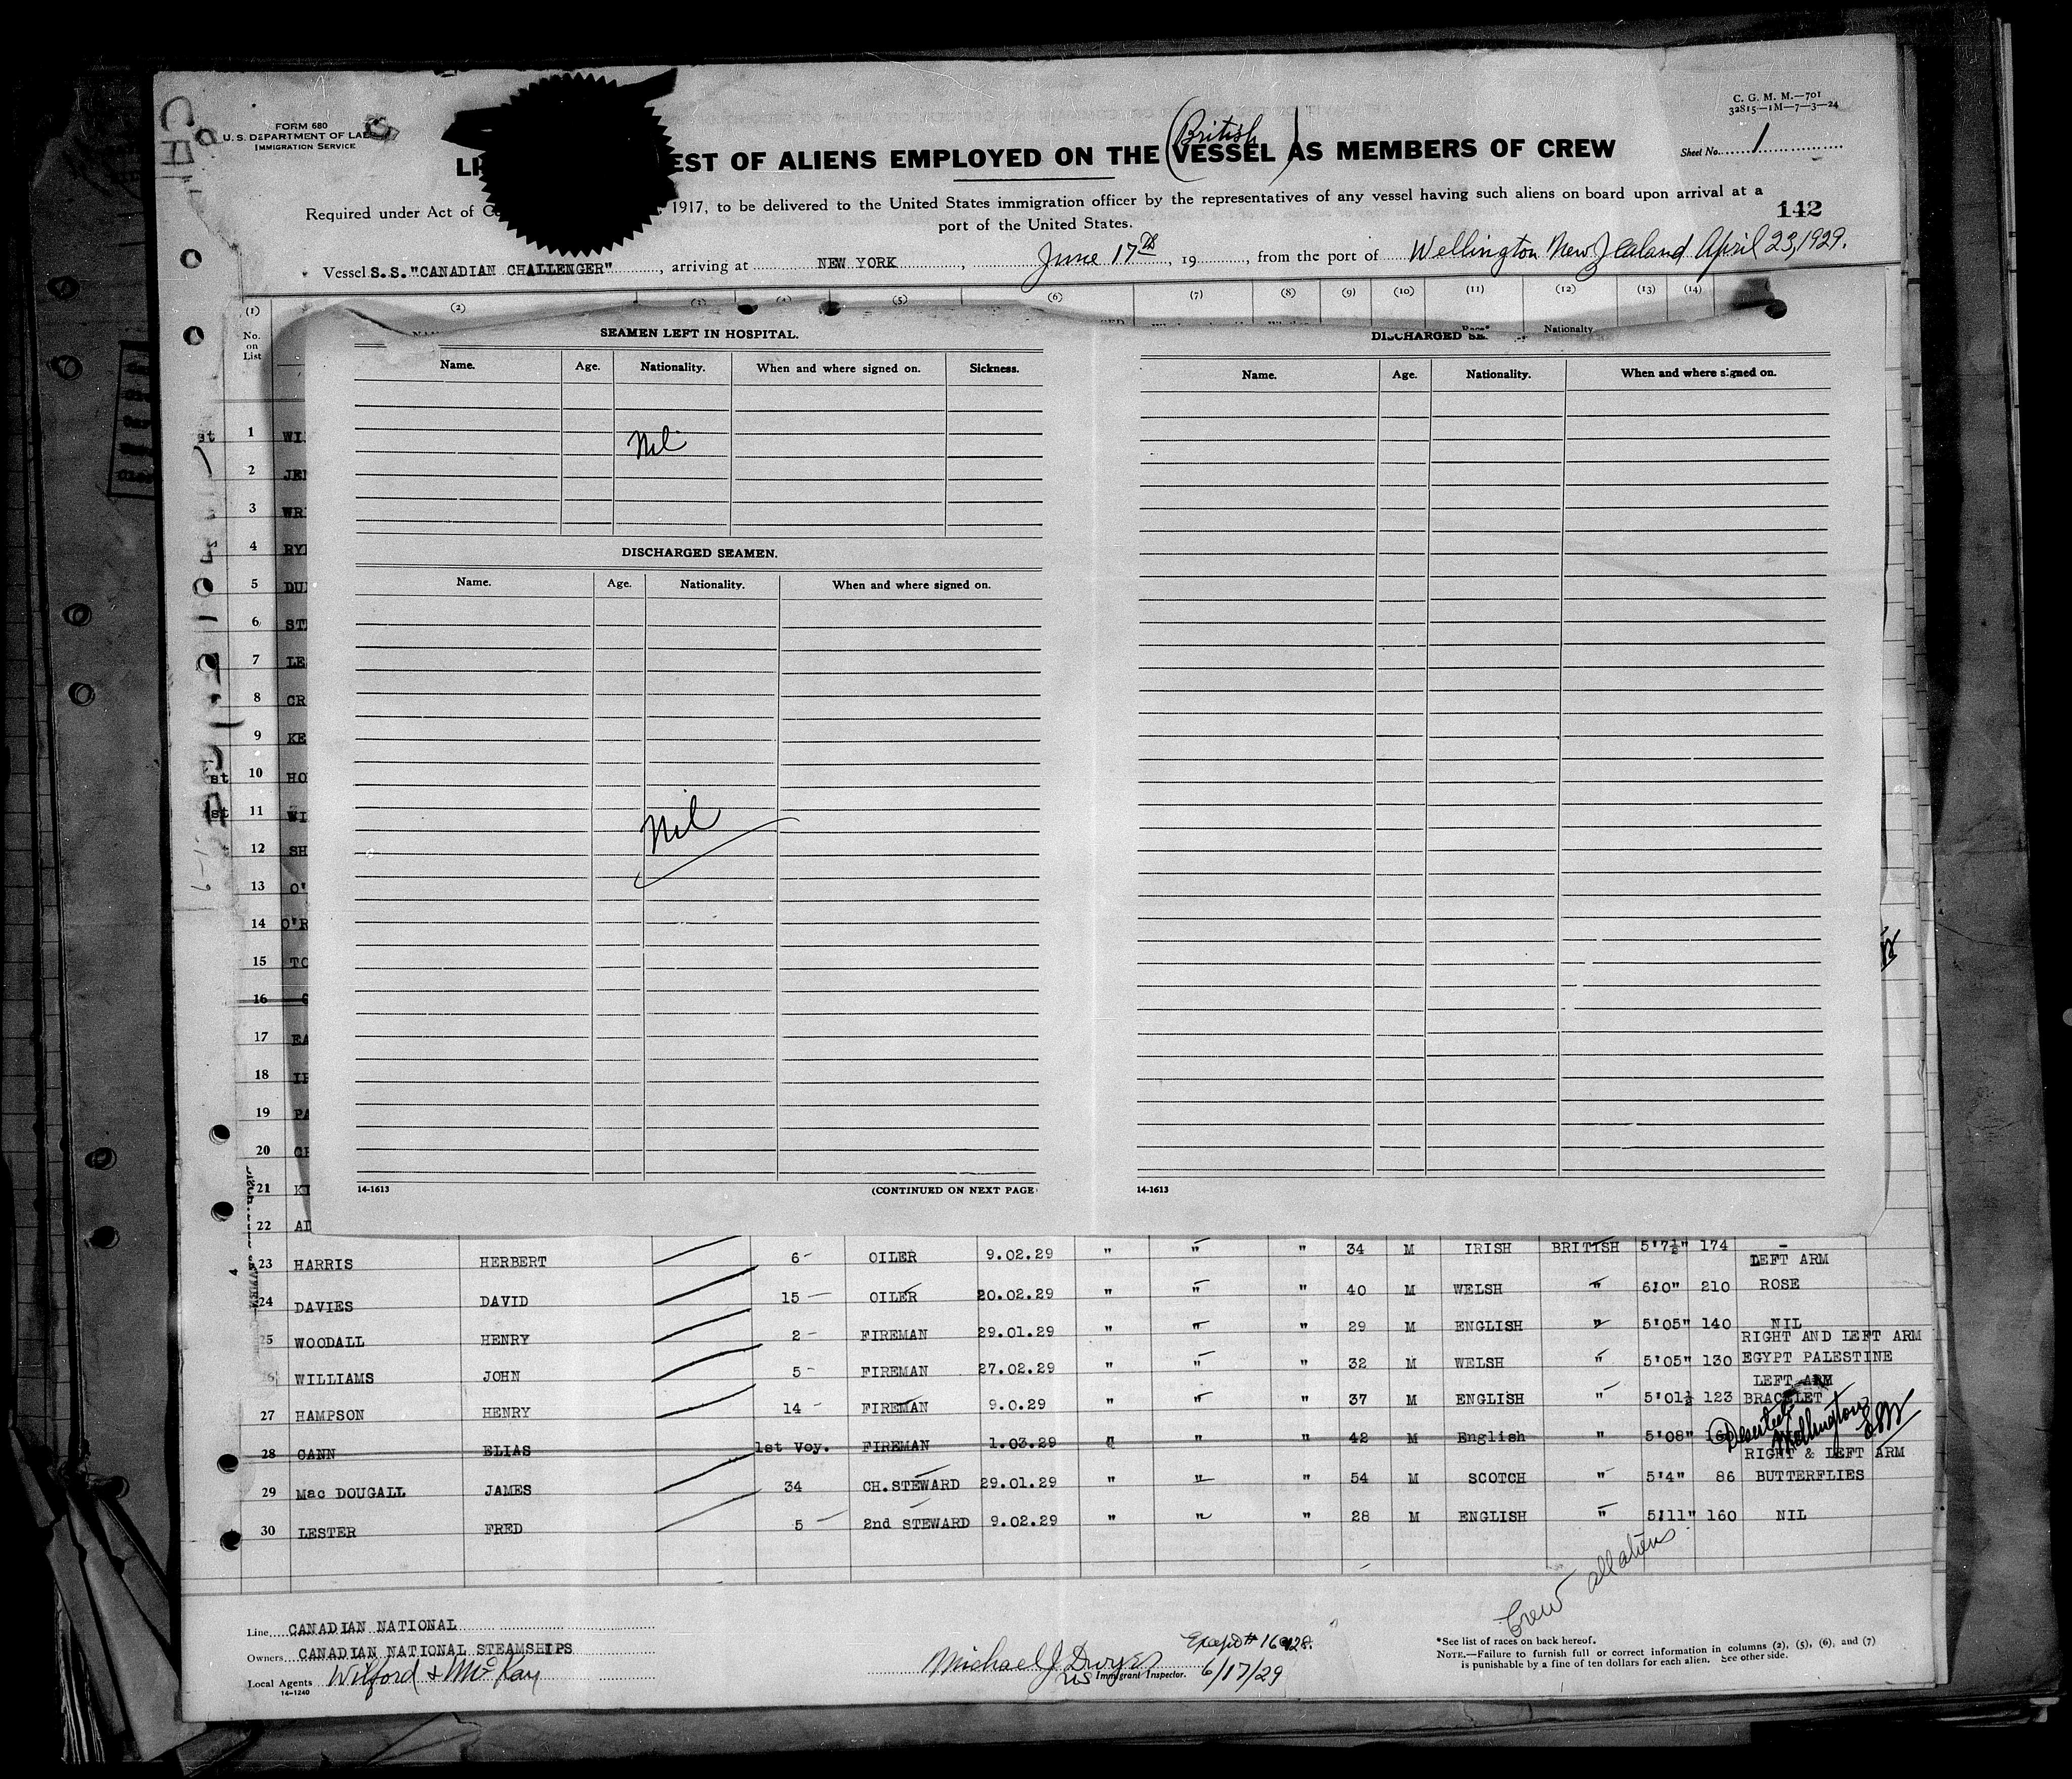 FORM 680
U. S. DEPARTMENT OF LAB
IMMIGRATION SERVICE
C. G. M. M.—701
32815—1M—7—3—24
(British)
EST OF ALIENS EMPLOYED ON THE VESSEL AS MEMBERS OF CREW
Sheet No. 1
Required under Act of Co 1917, to be delivered to the United States immigration officer by the representatives of any vessel having such aliens on board upon arrival at a
port of the United States.
142
Vessel S.S."CANADIAN CHALLENGER", arriving at NEW YORK, June 17th, 19, from the port of Wellington New Zealand April 23, 1929.
(1) (2) (3) (4) (5) (6) (7) (8) (9) (10) (11) (12) (13) (14)
No. on List
Nationalty
SEAMEN LEFT IN HOSPITAL.
Name. Age. Nationality. When and where signed on. Sickness.
Nil
DISCHARGED SEAMEN.
Name. Age. Nationality. When and where signed on.
Nil
14-1613 (CONTINUED ON NEXT PAGE
DISCHARGED SE
Name. Age. Nationality. When and where signed on.
14-1613
1 WI
2 JE
3 WR
4 RY
5 DU
6 ST
7 LE
8 CR
9 KE
10 HO
11 WI
12 SH
13 O'
14 O'R
15 TO
16
17 EA
18
19 PA
20
21
22
23 HARRIS HERBERT 6- OILER 9.02.29 " " " 34 M IRISH BRITISH 5'7½" 174 -
24 DAVIES DAVID 15 OILER 20.02.29 " " " 40 M WELSH " 6'0" 210 LEFT ARM ROSE
25 WOODALL HENRY 2- FIREMAN 29.01.29 " " " 29 M ENGLISH " 5'05" 140 NIL
26 WILLIAMS JOHN 5- FIREMAN 27.02.29 " " " 32 M WELSH " 5'05" 130 RIGHT AND LEFT ARM EGYPT PALESTINE
27 HAMPSON HENRY 14- FIREMAN 9.0.29 " " " 37 M ENGLISH " 5'01½ 123 LEFT ARM BRACELET
28 CANN ELIAS 1st Voy. FIREMAN 1.03.29 " " " 42 M English " 5'08" Deserted Wellington
29 Mac DOUGALL JAMES 34 CH.STEWARD 29.01.29 " " " 54 M SCOTCH " 5'4" 86 RIGHT & LEFT ARM BUTTERFLIES
30 LESTER FRED 5 2nd STEWARD 9.02.29 " " " 28 M ENGLISH " 5'11" 160 NIL
Crew all aliens
Line CANADIAN NATIONAL
Owners CANADIAN NATIONAL STEAMSHIPS
Local Agents Wilford & McKay
14-1240
Michael J Dwyer
US Immigrant Inspector. 6/17/29
*See list of races on back hereof.
NOTE.—Failure to furnish full or correct information in columns (2), (5), (6), and (7)
is punishable by a fine of ten dollars for each alien. See other side.